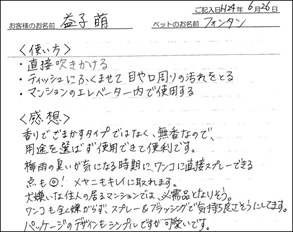 ご記入日H24年6月26日
お客様のお名前 益子 萌 ペットのお名前 フォンタン
<使い方>
・直接吹きかける
・ティッシュにふくませて目や口周りの汚れをとる
・マンションのエレベーター内で使用する
<感想>
香りでごまかすタイプではなく、無香なので、
用途を選ばず使用できて便利です。
梅雨の臭いが気になる時期に、ワンコに直接スプレーできる
点も◎! メヤニもキレイに取れます。
犬嫌いな住人の居るマンションでは、必需品となりそう。
ワンコも全く嫌がらず、スプレー&ブラッシングで気持ち良さそうにしてます。
パッケージのデザインもシンプルですが可愛いです。